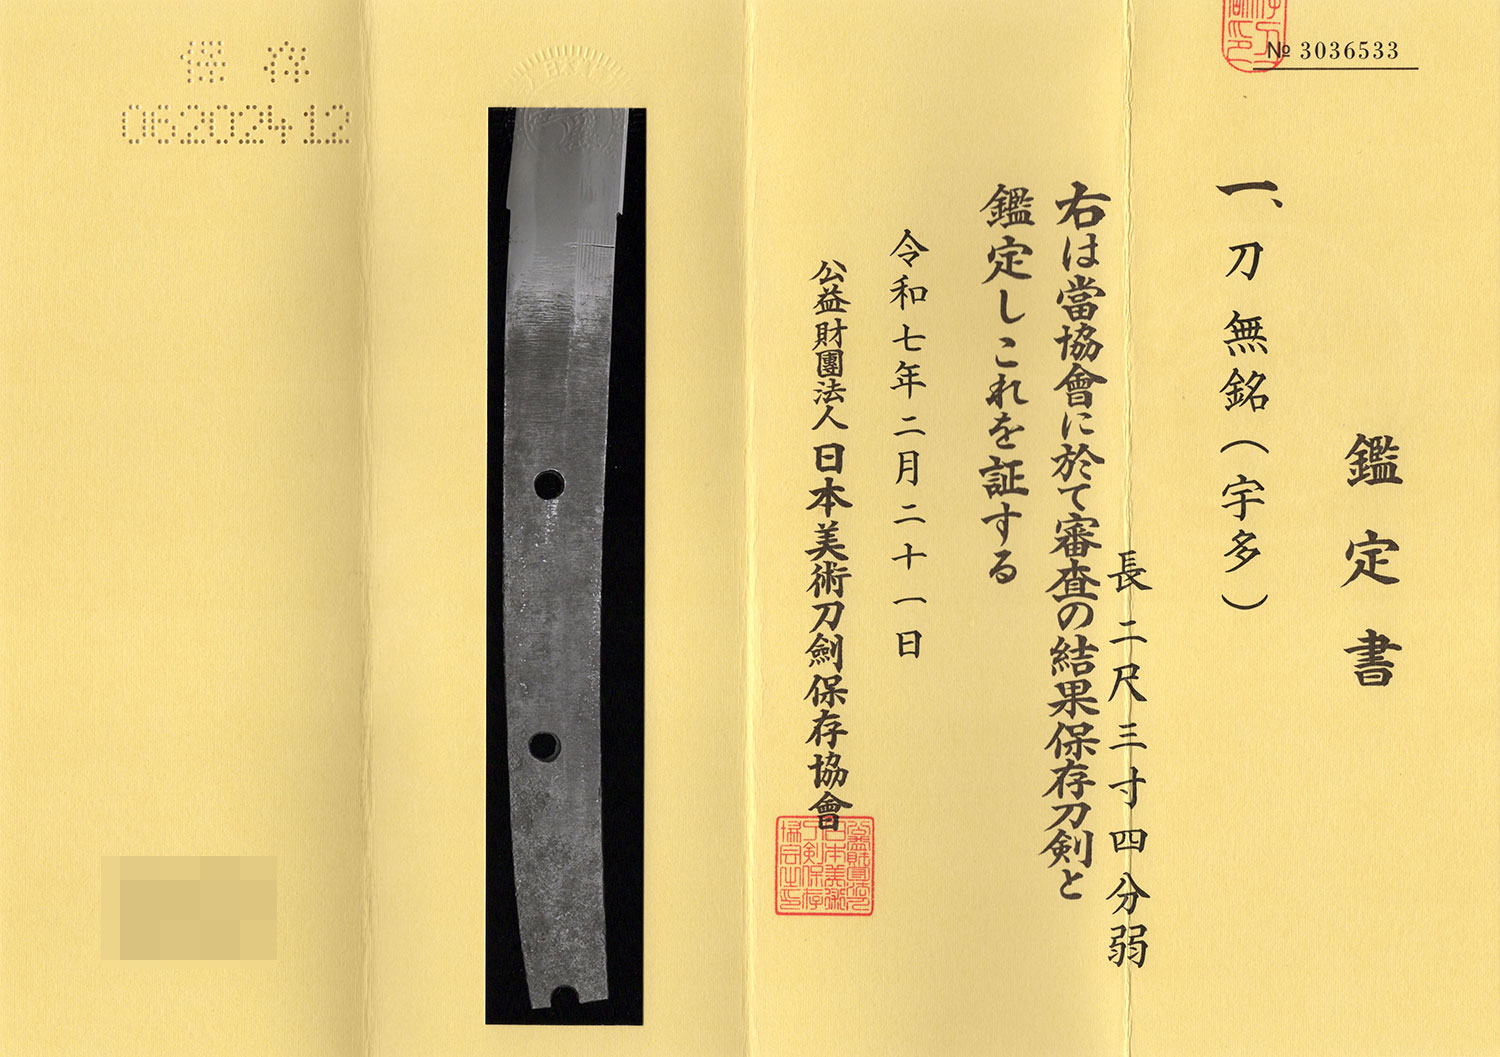 № 3036533
鑑定書
一、刀 無銘（宇多）
長 二尺三寸四分弱
右は當協會に於て審査の結果保存刀剣と
鑑定しこれを証する
令和七年二月二十一日
公益財團法人 日本美術刀劍保存協會
保存
06202412